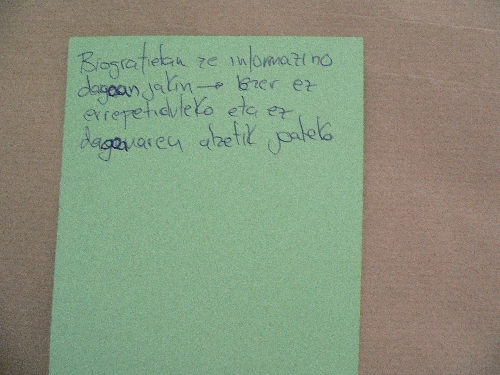 Biografietan ze informazino
dagoan jakin → ezer ez
errepetiduteko eta ez
dagoanaren atzetik joateko